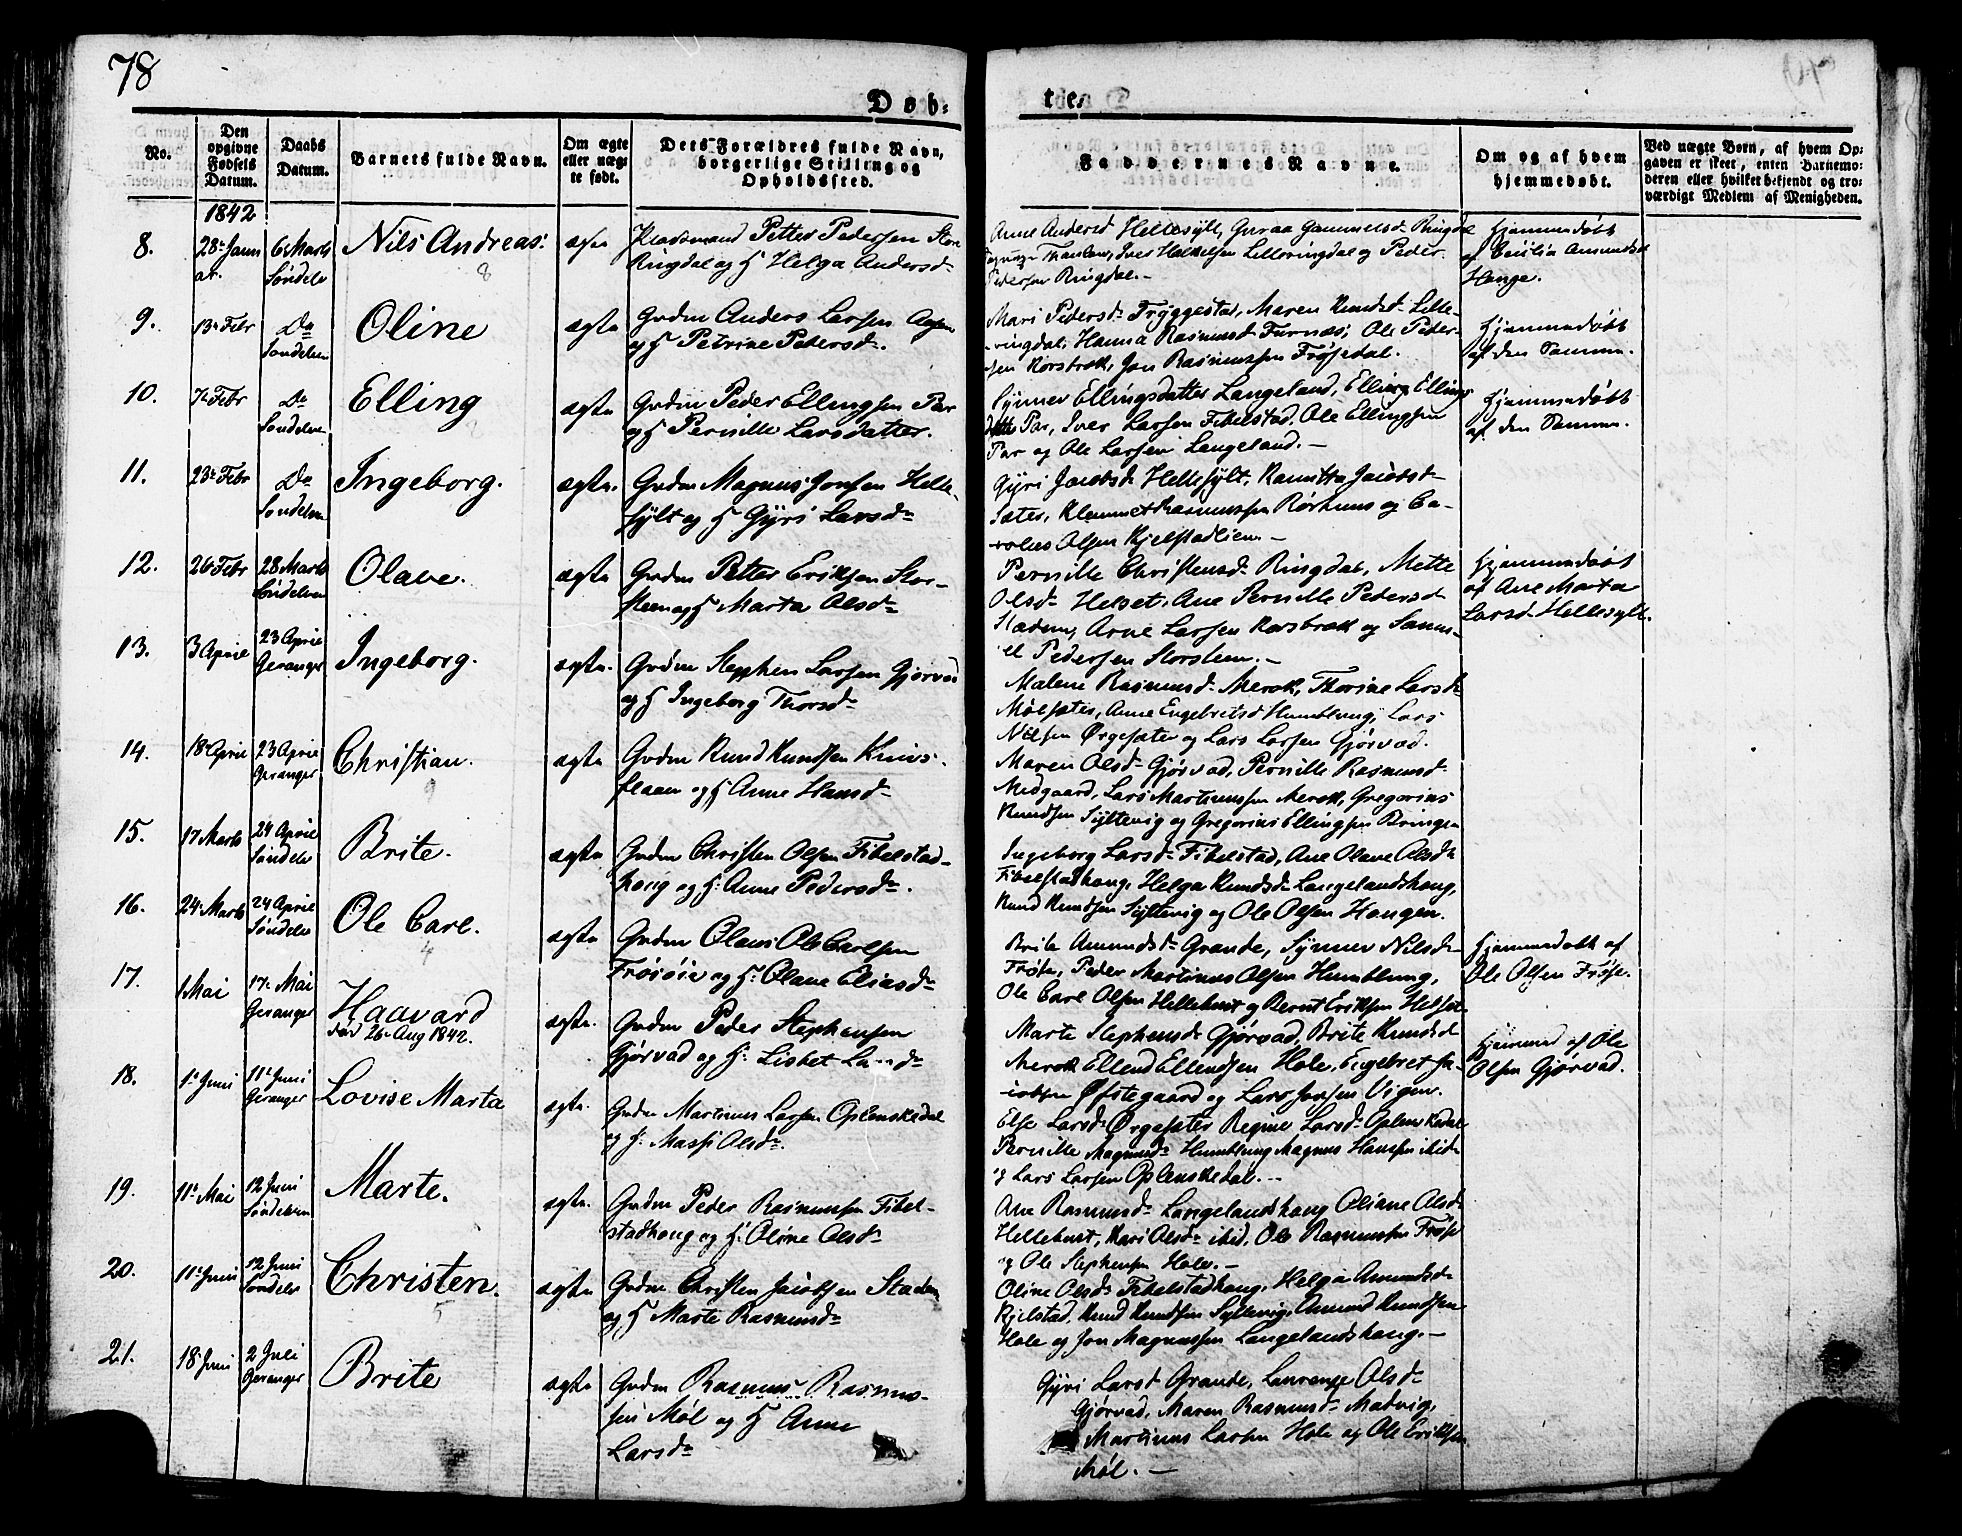 78
Døb-
tes
No.
Den opgivne Fødsels Datum.
Daabs Datum.
Barnets fulde Navn.
Om ægte eller uægte født.
Dets Forældres fulde Navn, borgerlige Stilling og Opholdssted.
Faddernes Navne.
Om og af hvem hjemmedøbt.
Ved uægte Børn, af hvem Opgaven er skeet, enten Barnemoderen eller hvilket bekjendt og troværdigt Medlem af Menigheden.
1842
8.
28de Janu
ar.
6 Marts
Søndelv
Nils Andreas.
8
ægte
Pladsmand Petter Pedersen Stor
Ringdal og H Helga Andersd
Anne Andersd Hellesylt, Guraa Gammelsd Ringdal
Iver Halkelsen Lilleringdal og Peder
Pedersen Ringdal.
Hjemmedøbt
af Cecilia Amundsd
Hauge.
9.
13de Febr
Do
Søndelven
Oline
ægte
Grdm Anders Larsen
og H Petrine Pedersd.
Mari Pedersd Tryggestad, Maren Knudsd Lille-
ringdal, Hanna Rasmusd Furnæs, Ole Peder-
sen Korsbrek, Jon Rasmussen Frøsedal.
Hjemmedøbt
af den Samme.
10.
7de Febr
Do
Søndelven
Elling
ægte
Grdm Peder Ellingsen Par
og H Pernille Larsdatter.
Synnev Ellingsdatter Langeland, Elling Ellings
Par, Iver Larsen Fibelstad, Ole Ellingsen
Par og Ole Larsen Langeland.
Hjemmedøbt
af den Samme.
11.
23de Febr
Do
Søndelven
Ingeborg.
ægte.
Grdm Magnus Jonsen Helle-
sylt og H Gyri Larsd
Gyri Jacobsd Hellesylt, Jacobsd
Sæter, Klemmet Rasmussen Rørhuus og Ca-
rolus Olsen Kjelstadlien.
12.
26 Febr
28 Marts
Søndelven
Olave.
ægte
Grdm Petter Eriksen Stor-
steen og H Marta Olsd
Pernille Christensd Ringdal, Mette
Olsd Helset, Ane Pernille Pedersd
Stadem, Arne Larsen Korsbrek og Samu-
el Pedersen Storsteen.
Hjemmedøbt
af Ane Marta
Larsd Hellesylt.
13.
3 April
23 April
Geranger
Ingeborg.
ægte.
Grdm Stephen Larsen Gjørvad
og H Ingeborg Thorsd
Malene Rasmusd Merok, Thorine Larsd
Mølsæter, Anne Engebretsd Humblung, Lars
Nilsen Ørgesæter og Lars Larsen Gjørvad.
14.
18 April
23 April
Geranger
Christian.
9
ægte
Grdm Knud Knudsen Knivs-
flaaen og H Anne Hansd
Maren Olsd Gjørvad, Pernille Rasmusd
Medgaard, Lars Martinussen Merok, Gregorius
Knudsen Syltevig og Gregorius Ellingsen Bringen
15.
17 Marts
24 April
Søndelv
Brite.
ægte
Grdm Christen Olsen Fibelstad-
houg og H: Anne Pedersd.
Ingeborg Larsd Fibelstad, Ane Olave Olsd
Fibelstadhoug, Helga Knudsd Langelandshoug,
Knud Knudsen Syltevig og Ole Olsen Haugen.
16.
24 Marts
24 April
Søndelv
Ole Carl.
4
ægte
Grdm Olaus Ole Carlsen
Frøsøie og H: Olave Eliasd
Brite Amundsd Grande, Synnev Nilsd
Frøse, Peder Martinus Olsen Humblung,
Ole Carl Olsen Hellehuus og Bernt Eriksen Helset.
Hjemmedøbt af
Ole Olsen Frøse.
17.
1 Mai
17de Mai
Geranger
Haavard
død 26 Aug 1842.
ægte.
Grdm Peder Stephensen
Gjørvad og H: Lisbet Larsd
Marte Stephensd Gjørvad, Brite Knudsd
Merok, Ellend Ellendsen Hole, Engebret Ja-
cobsen Øfstegaard og Lars Jonsen Vigen.
Hjemmed af Ole
Olsen Gjørvad.
18.
1de Juni
11te Juni
Geranger
Lovise Marta
ægte.
Grdm Martinus Larsen Oplenskedal
og H: Massi Olsd.
Else Larsd Ørgesæter Regine Larsd Oplenskedal
Pernille Magnusd Humblung Magnus Hansen ibid
og Lars Larsen Oplenskedal.
19.
11te Mai
12 Juni
Søndelven
Marte.
ægte.
Grdm Peder Rasmussen Fibel-
stadhoug og H: Oline Olsd
Ane Rasmusd Langelandshoug Oliane Olsd
Hellehuus, Kari Olsd ibid, Ole Rasmussen Frøse
og Ole Stephensen Hole.
20.
11te Juni
12 Juni
Søndelv
Christen.
5
ægte
Grdm Christen Jacobsen Stadem
og H Marte Rasmusd
Oline Olsd Fibelstadhoug, Helga Amundsd
Kjelstad, Knud Knudsen Syltevig, Amund Knudsen
Hole og Jon Magnussen Langelandshoug.
21.
18 Juni
2 Juli
Geranger
Brite
ægte
Grdm Rasmus Rasmus-
sen Møl og H Anne
Larsd
Gyri Larsd Grande, Laurense Olsd
Gjørvad, Maren Rasmusd Madvig,
Martinus Larsen Hole og Ole Eriksen
Møl.